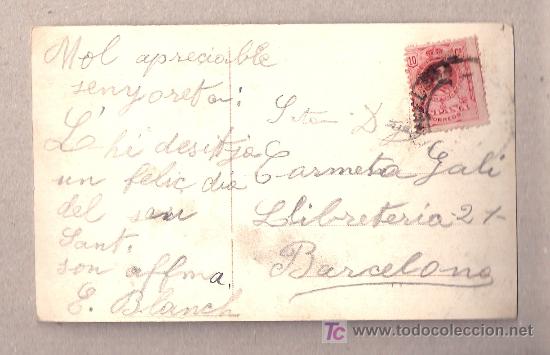 Mol apreciable
senyoreta:
L'hi desitja
un felic dia
del seu
Sant.
son affma.
E. Blanch
Sta D
Carmeta Galí
Llibreteria 21
Barcelona
10
CORREOS
TC www.todocoleccion.net